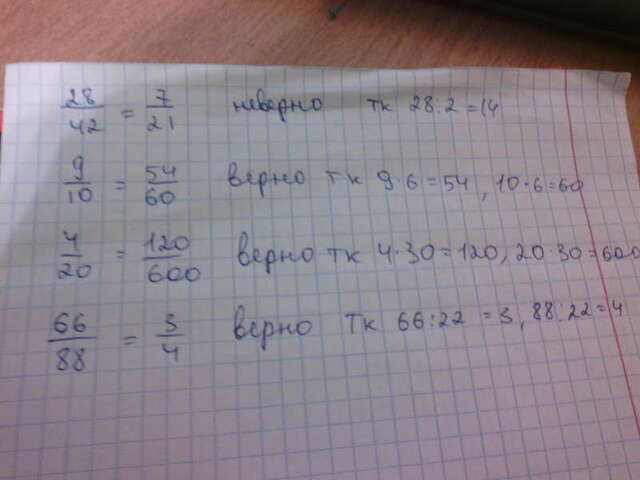 28/42 = 7/21 неверно тк 28:2=14
9/10 = 54/60 верно тк 9·6=54, 10·6=60
4/20 = 120/600 верно тк 4·30=120, 20·30=600
66/88 = 3/4 верно тк 66:22=3, 88:22=4